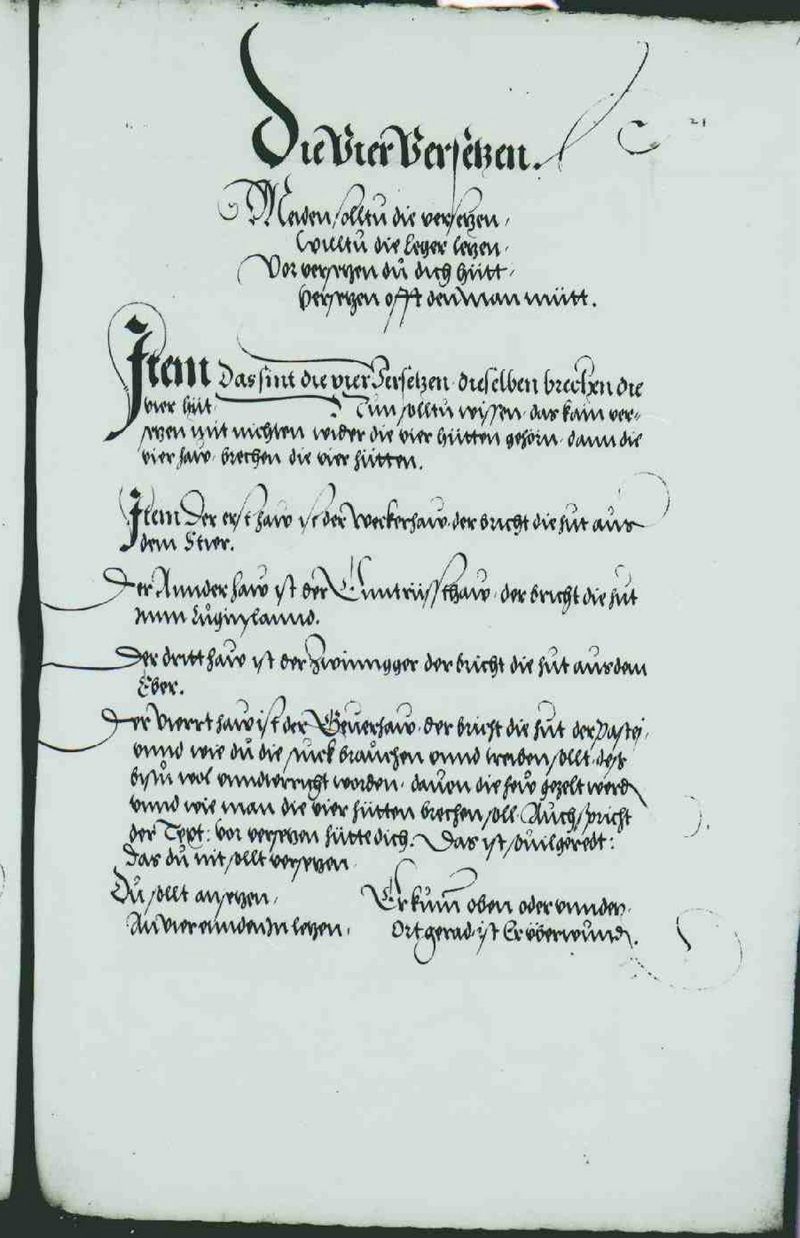 Die Vier Versetzen.
Meiden solltu die versetzen,
willtu die leger letzen,
Vor versetzen dŭ dich hŭtt,
Versetzen offt den Man mŭtt.
Item Das sint die vier Versetzen, dieselben brechen die
vier hŭt, Nun solltu wissen, das kain ver=
setzen mit nichten wider die vier hŭtten gehörn, dann die
vier haw, brechen die vier hŭtten.
Item Der erst haw ist der krumphaw, der bricht die hut aus
dem Stier.
Der Annder haw ist der, der bricht die hŭt
vnnd Lŭginslannd.
Der dritt haw ist der Zwinngger der bricht die hŭt aus dem
Eber.
Der vierrt haw ist der, der bricht die hŭt der Pastej,
vnnd wie dŭ die stuck braŭchen vnnd treiben sollt, des
bistŭ wol vnndterricht worden, dauon die hew gezelt werd
vnnd wie man die vier hŭtten brechen soll. Auch spricht
der Text: vor versetzen hŭtte dich. Das ist souil geredt:
das dŭ nit sollt versetzen
Dŭ sollt ansetzen, Er kŭm oben oder vnnden,
An vier ennden Jn letzen, Ort gerad, ist Er vberwŭnd.